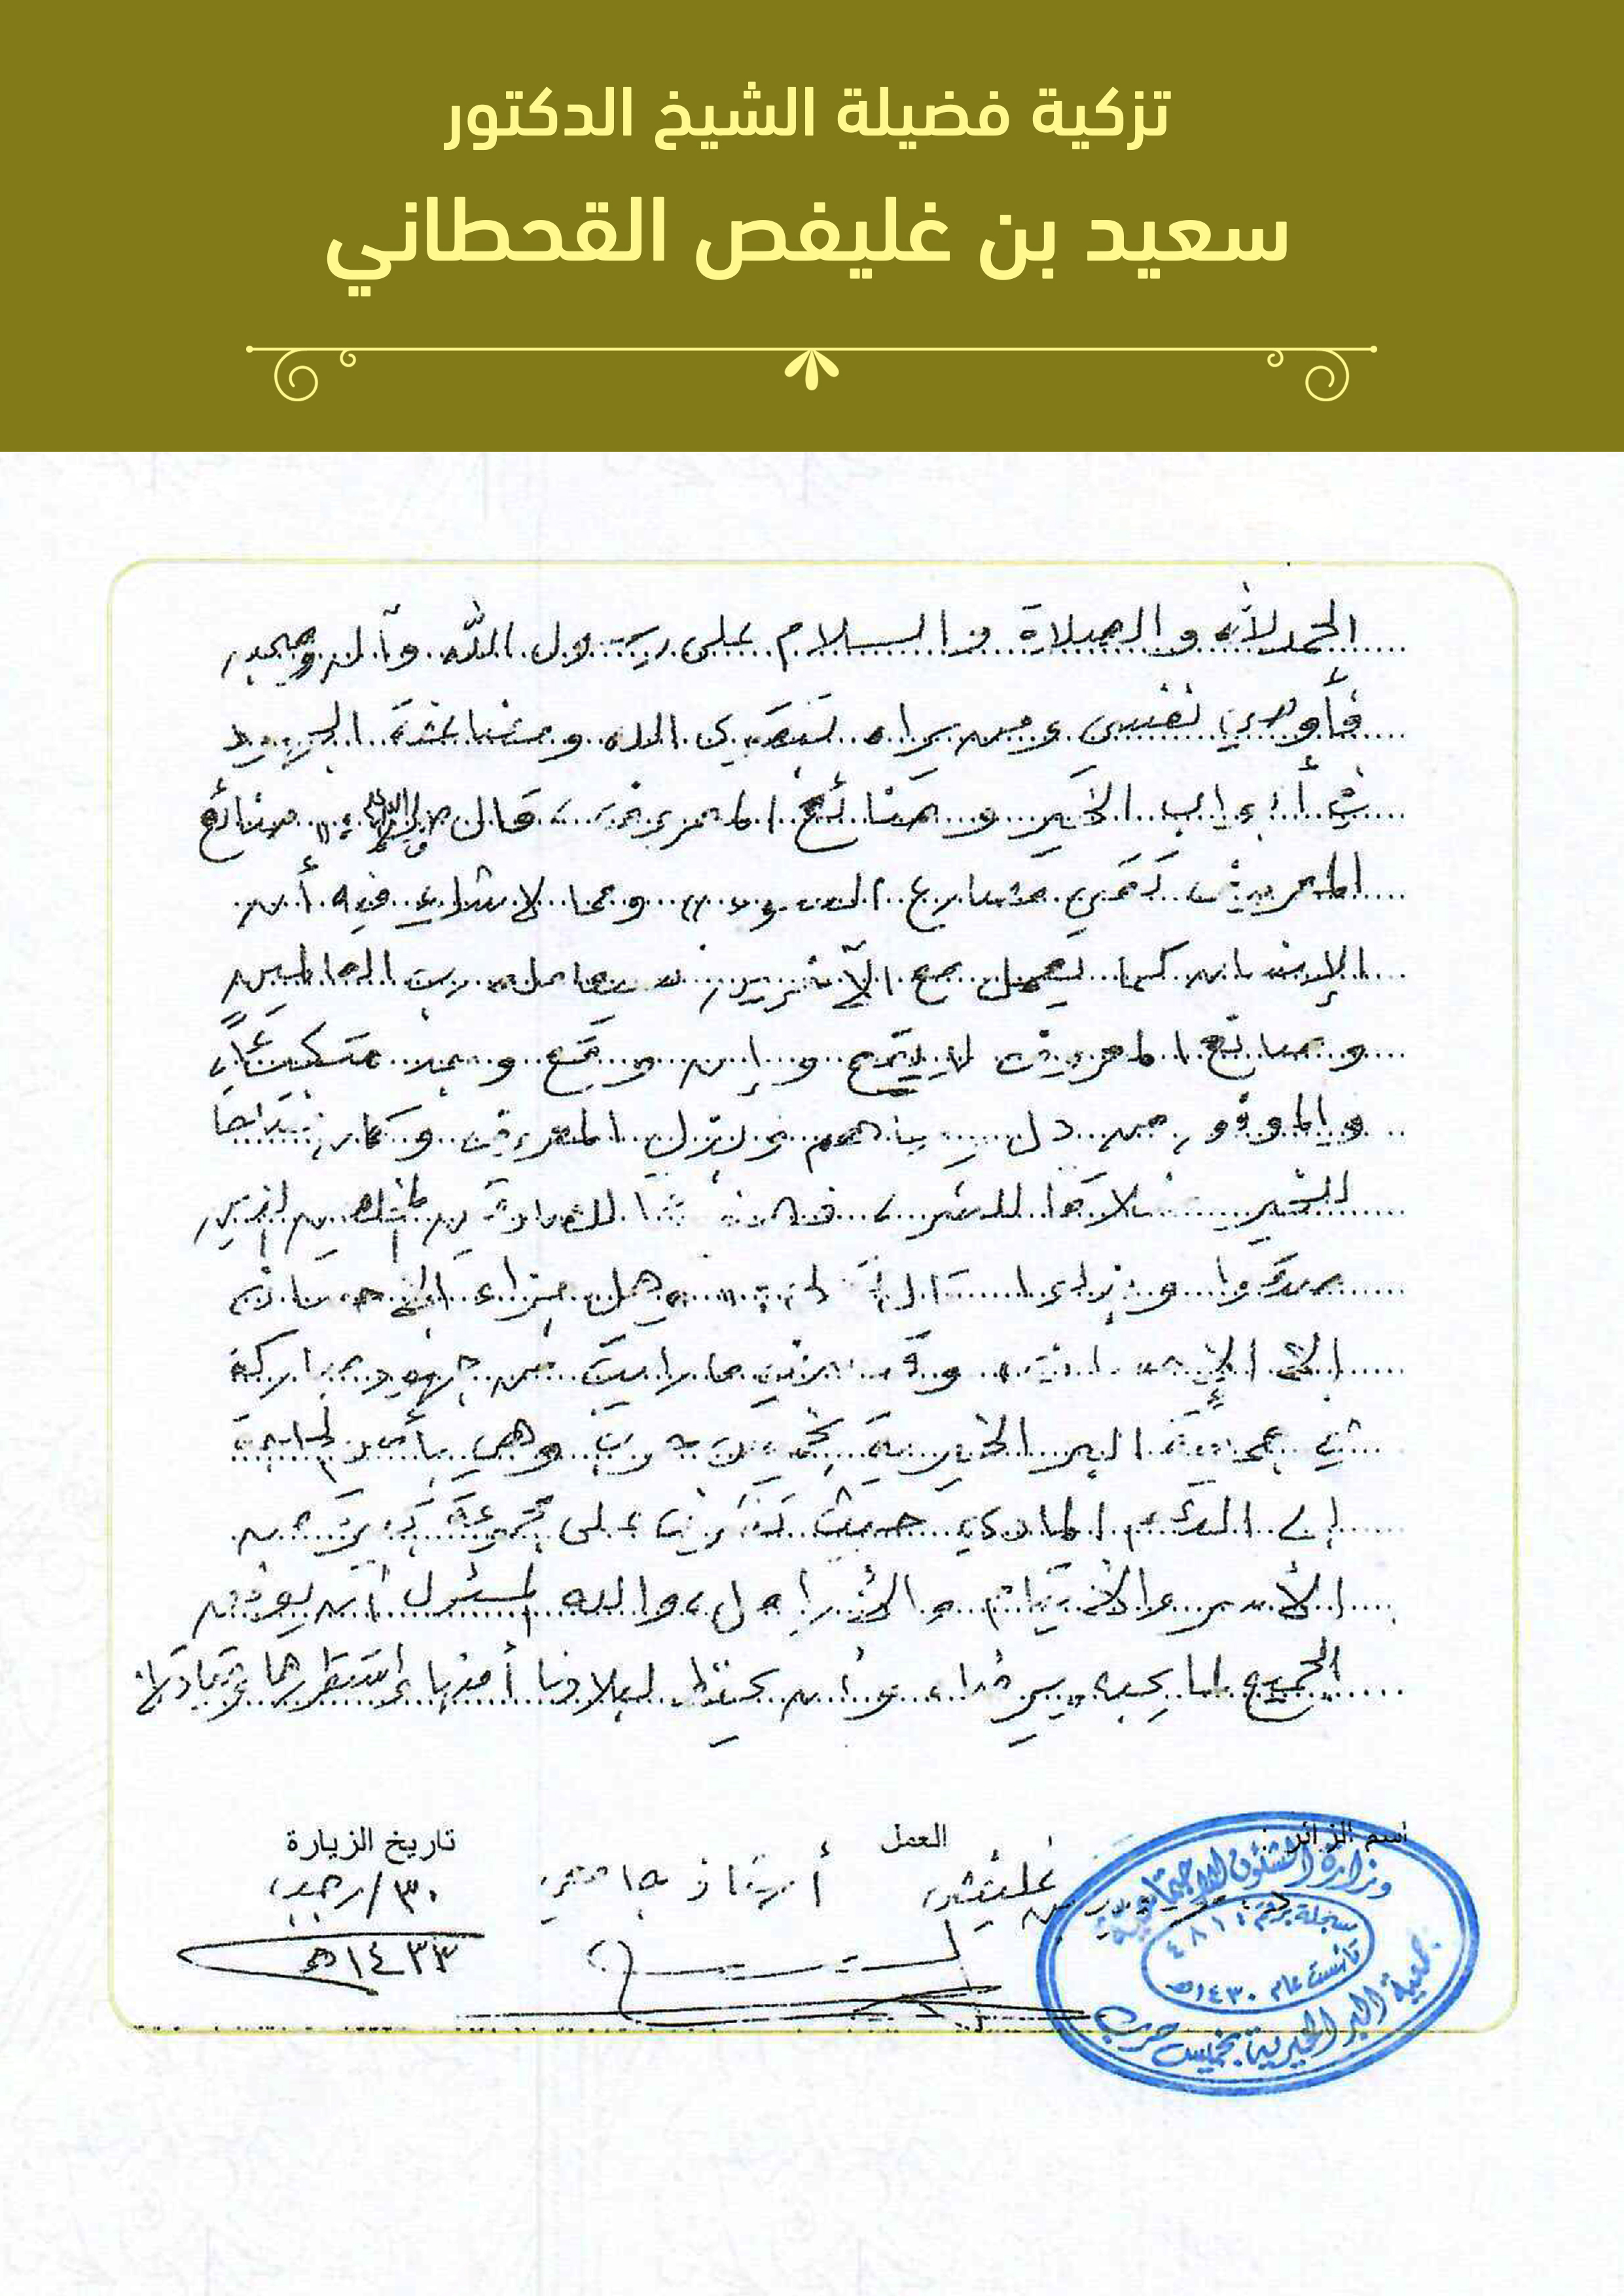 تزكية فضيلة الشيخ الدكتور
سعيد بن غليفص القحطاني
الحمد لله والصلاة والسلام على رسول الله وآله وصحبه
فأوصي نفسي ومن يراه بتقوى الله ومضاعفة الجهود
في أبواب الخير وصنائع المعروف، قال صلى الله عليه وسلم "صنائع
المعروف تقي مصارع السوء" ومما لا شك فيه أن
الإنسان كما يعمل مع الآخرين يعامله رب العالمين
وصانع المعروف لا يقع وإن وقع وجد متكئاً
والموفق من بذل المعروف وكان مفتاحاً
للخير مغلاقاً للشر، الذين
صدقوا "وهل جزاء الإحسان
إلا الإحسان" وقد سرني ما رأيت من جهود مباركة
في جمعية البر الخيرية بخميس حرب وهي بأمس الحاجة
إلى الدعم المادي حيث تشرف على مجموعة كبيرة من
الأسر والأيتام والأرامل، والله المسئول أن يوفق
الجميع لما يحبه ويرضاه وأن يحفظ لبلادنا أمنها واستقرارها وقيادتها
اسم الزائر العمل تاريخ الزيارة
بن غليفص أستاذ جامعي ٣٠/رجب
١٤٣٣هـ
وزارة الشئون الاجتماعية
سجلة برقم
تأسست عام ١٤٣٠هـ
جمعية البر الخيرية بخميس حرب